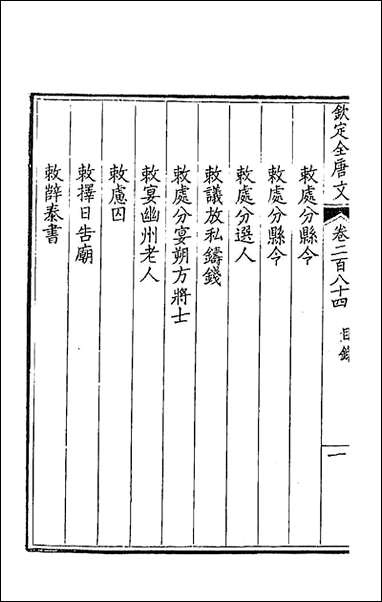 欽定全唐文 卷二百八十四 目錄 一
敕處分縣令
敕處分縣令
敕處分選人
敕議放私鑄錢
敕處分宴朔方將士
敕宴幽州老人
敕慮囚
敕擇日告廟
敕薛泰書